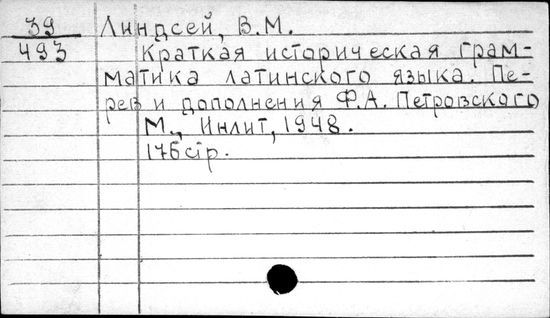 39 Линдсей, В.М.
493 Краткая историческая грам-
матика латинского языка. Пе-
рев и дополнения Ф.А. Петровского
М., Инлит, 1948.
176 стр.